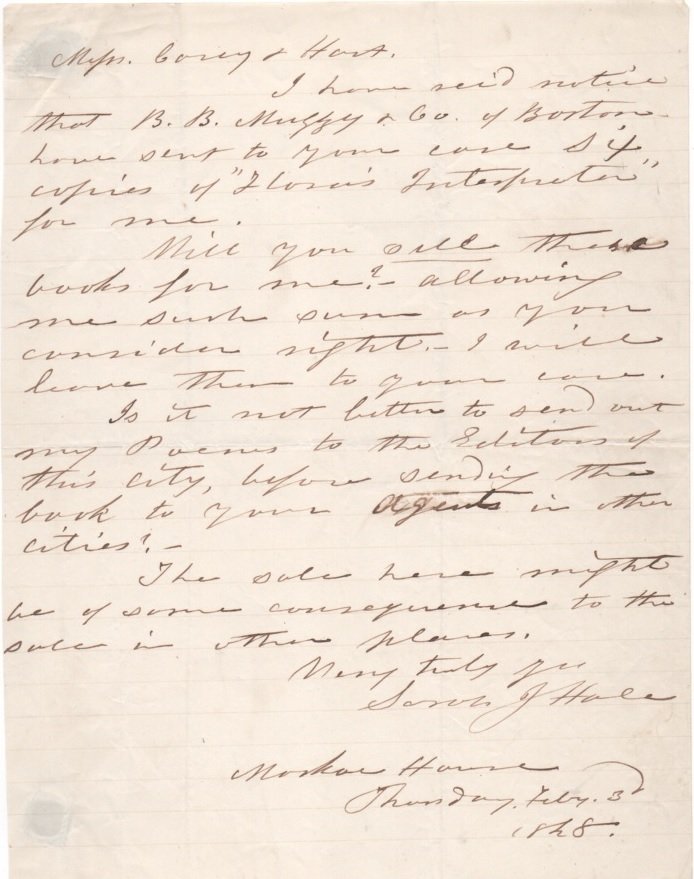 Messrs. Carey & Hart.
I have rec'd notice
that B. B. Muzzy & Co. of Boston
have sent to your care six
copies of "Flora's Interpreter"
for me.
Will you sell these
books for me? – allowing
me such sum as you
consider right. – I will
leave them to your care.
Is it not better to send out
my Poems to the Editors of
this city, before sending the
book to your agents in other
cities? –
The sale here might
be of some consequence to the
sale in other places.
Very truly yrs
Sarah J Hale
House
Thursday, Feby. 3d
1848.